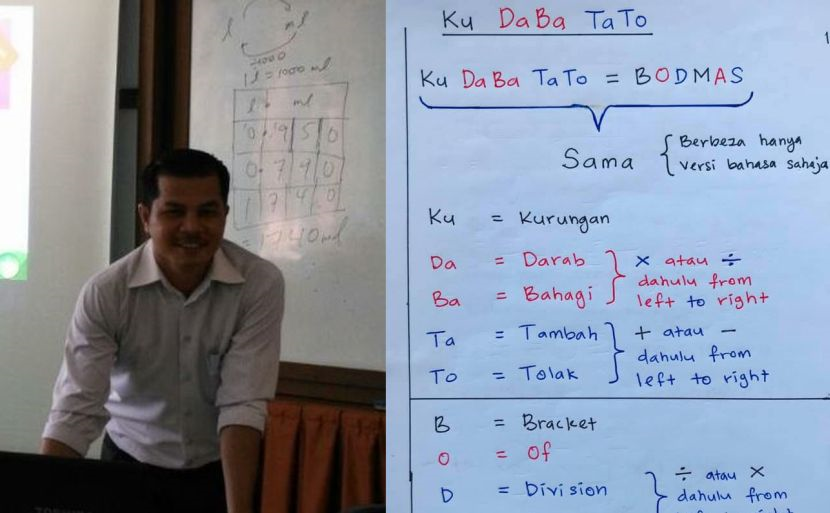 l ml
1000
1 l = 1000 ml
l ml
0 . 9 5 0
0 . 7 9 0
1 7 4 0
= 1740 ml
Ku DaBa TaTo
Ku DaBa TaTo = BODMAS
Sama
Berbeza hanya
versi bahasa sahaja
Ku = Kurungan
Da = Darab
Ba = Bahagi
× atau ÷
dahulu from
left to right
Ta = Tambah
To = Tolak
+ atau −
dahulu from
left to right
B = Bracket
O = Of
D = Division
÷ atau ×
dahulu from